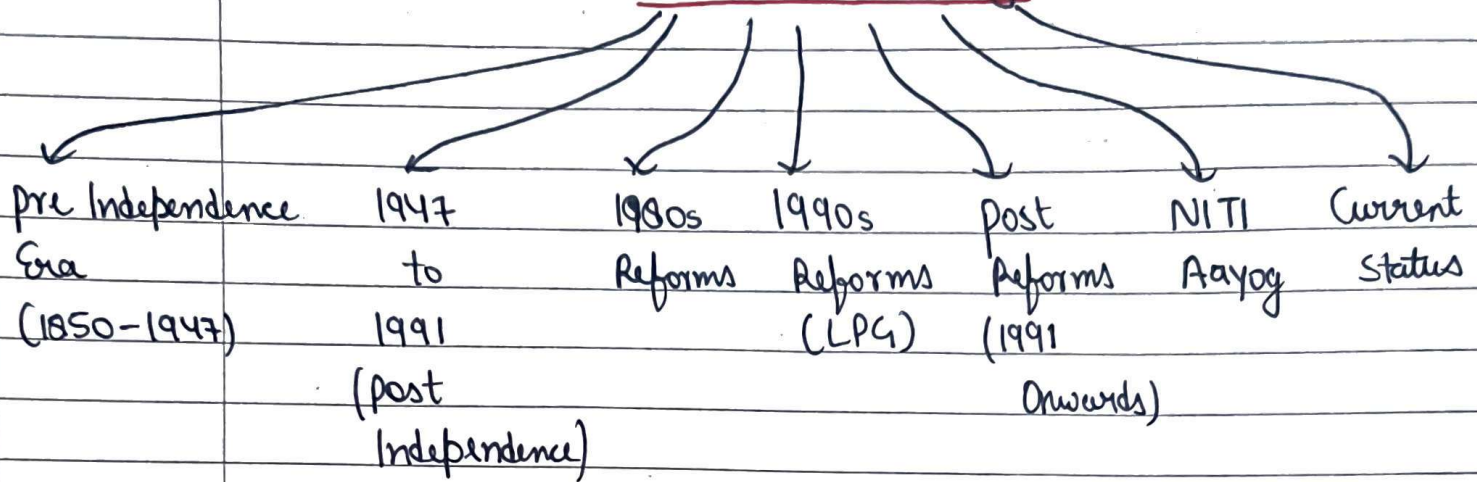 Pre Independence
Era
(1850-1947)
1947
to
1991
(Post
Independence)
1980s
Reforms
1990s
Reforms
(LPG)
Post
Reforms
(1991
Onwards)
NITI
Aayog
Current
Status